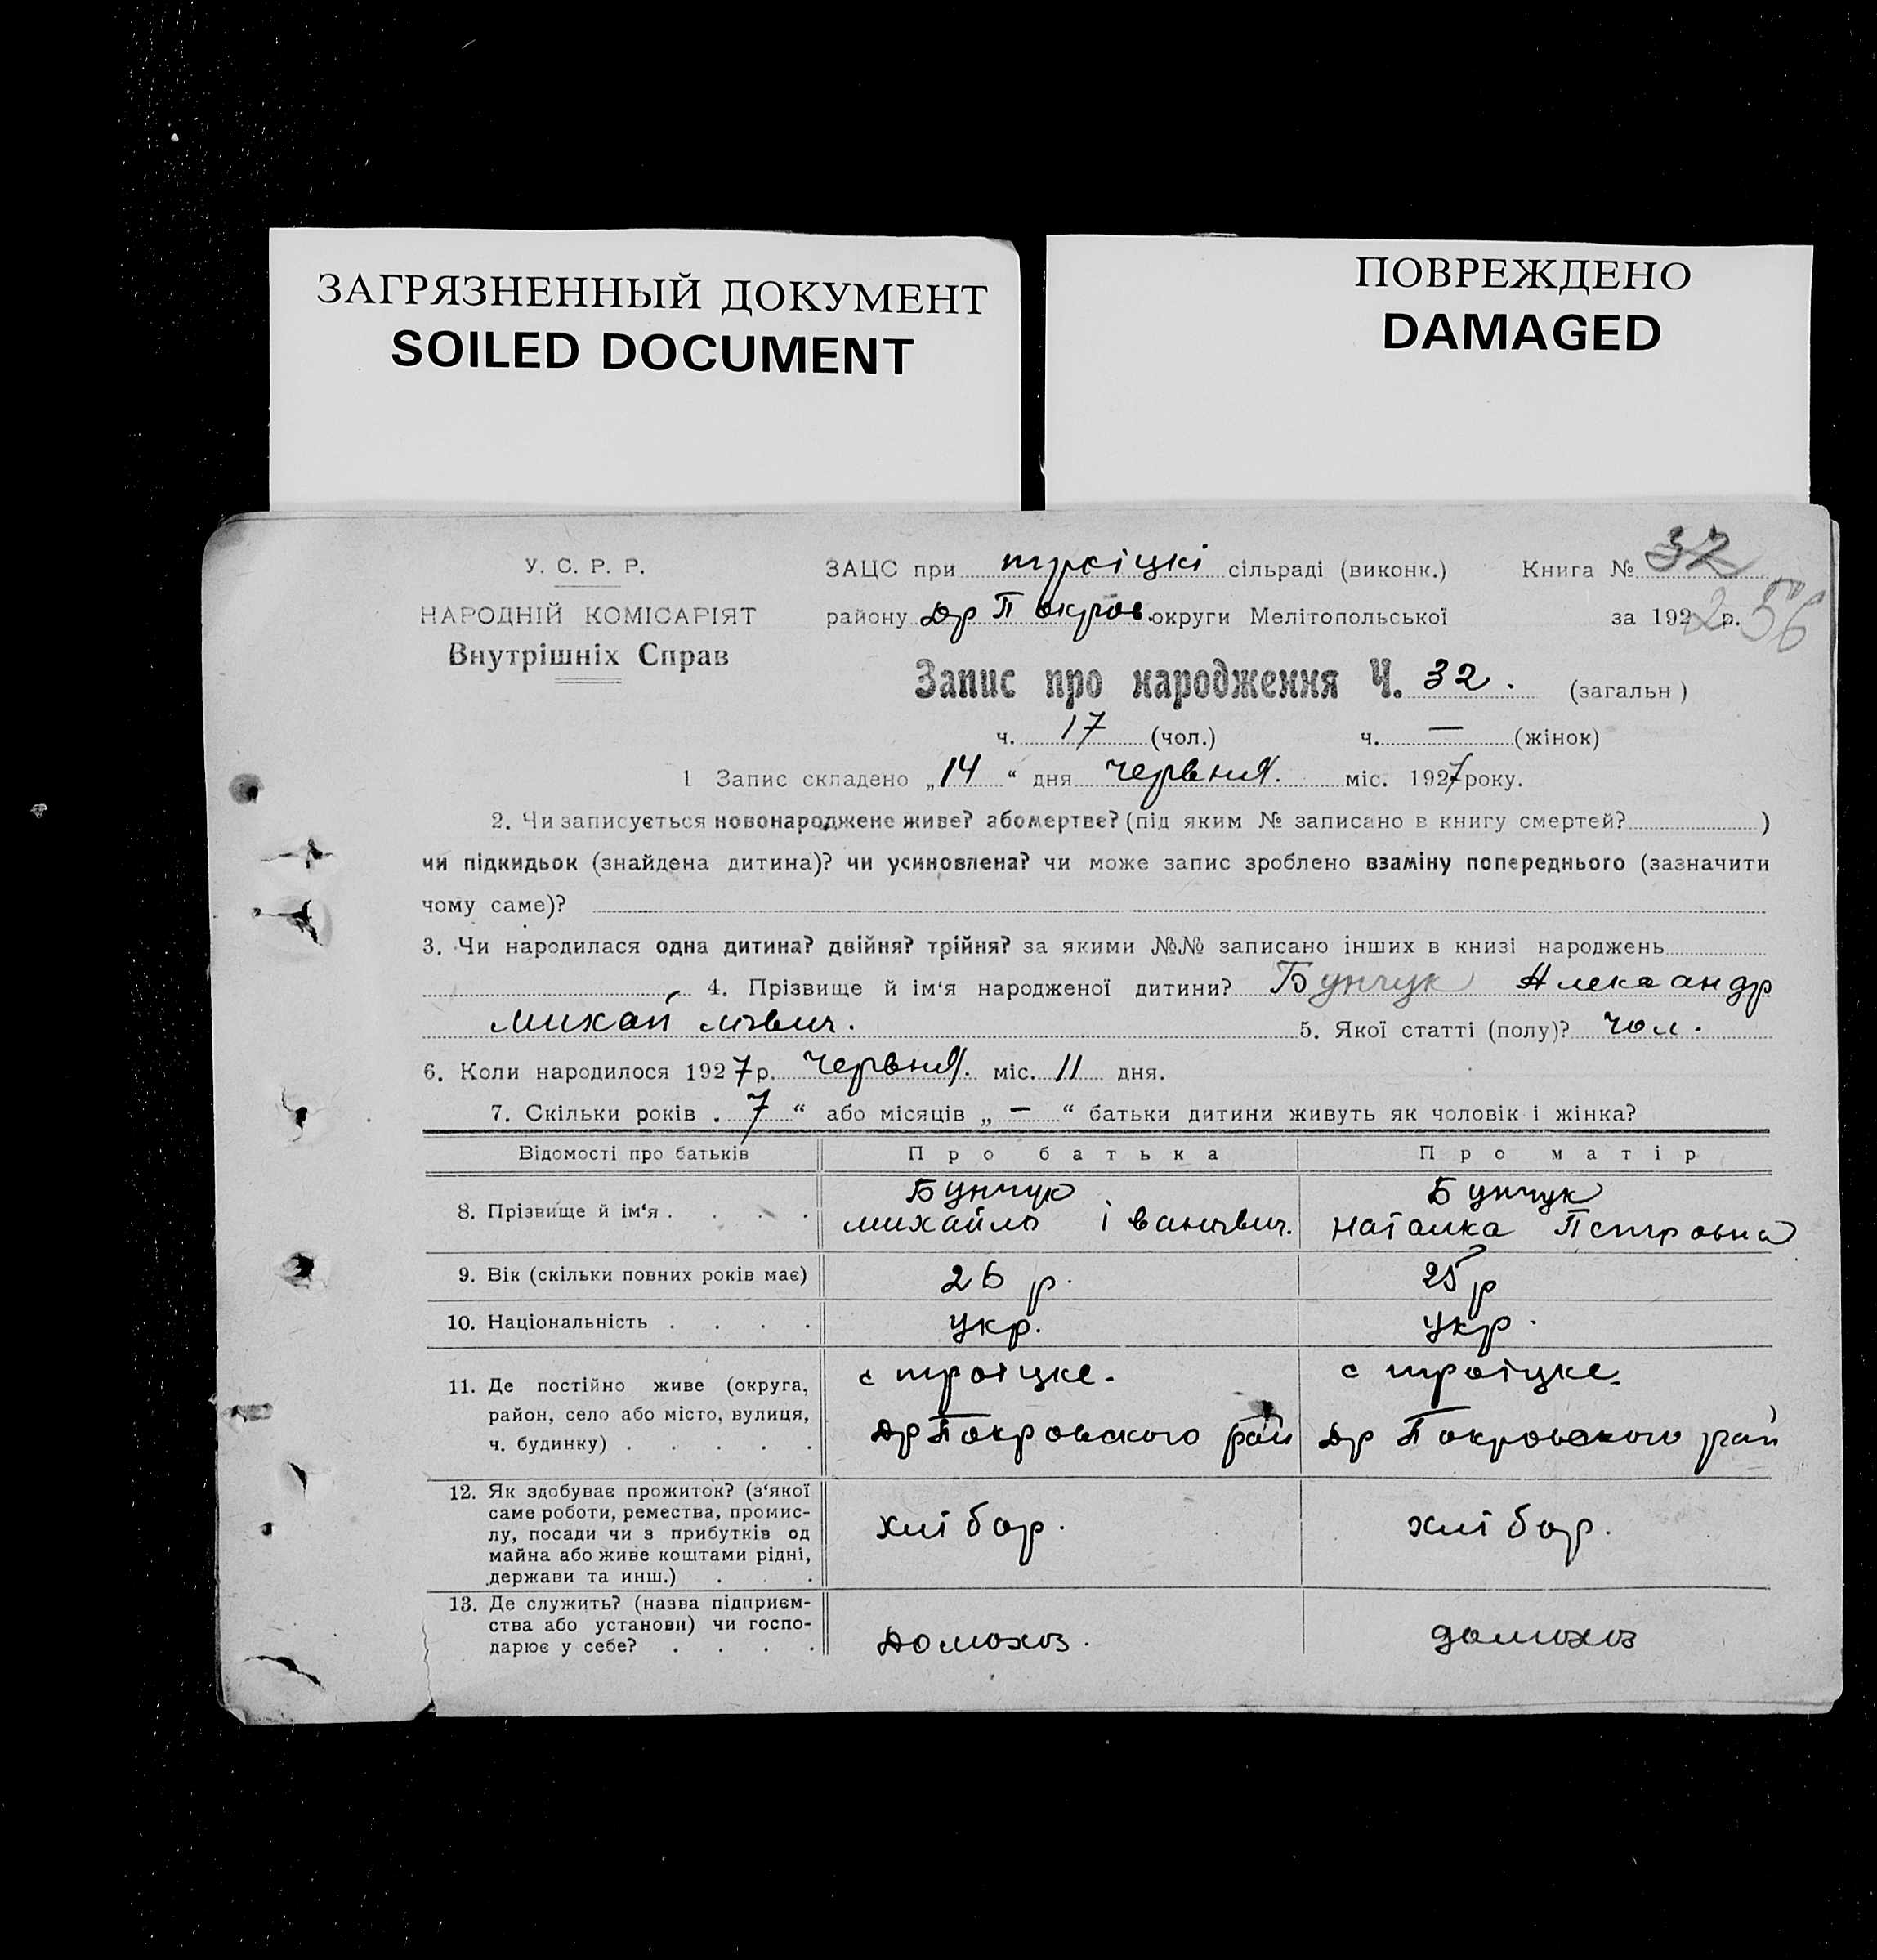 ЗАГРЯЗНЕННЫЙ ДОКУМЕНТ
SOILED DOCUMENT
ПОВРЕЖДЕНО
DAMAGED
У. С. Р. Р.
НАРОДНІЙ КОМІСАРІЯТ
Внутрішніх Справ
ЗАЦС при троіцкі сільраді (виконк.) Книга № 32
району Др Покров. округи Мелітопольської за 192 р. 56
Запис про народження Ч. 32. (загальн)
ч. 17 (чол.) ч. — (жінок)
1 Запис складено „14“ дня червня. міс. 1927 року.
2. Чи записується новонароджене живе? або мертве? (під яким № записано в книгу смертей? )
чи підкидьок (знайдена дитина)? чи усиновлена? чи може запис зроблено взаміну попереднього (зазначити
чому саме)?
3. Чи народилася одна дитина? двійня? трійня? за якими №№ записано інших в книзі народжень
4. Прізвище й ім'я народженої дитини? Бунчук Александр
Михайлович. 5. Якої статті (полу)? чол.
6. Коли народилося 1927 р. червня. міс. 11 дня.
7. Скільки років „7“ або місяців „—“ батьки дитини живуть як чоловік і жінка?
Відомості про батьків Про батька Про матір
8. Прізвище й ім'я . . . . Бунчук Михайло Іванович. Бунчук Наталка Петровна
9. Вік (скільки повних років має) 26 р. 25 р
10. Національність . . . . укр. укр.
11. Де постійно живе (округа, с троіцке. с троіцке.
район, село або місто, вулиця, Др Покровского рай Др Покровского рай
ч. будинку) . . . . .
12. Як здобуває прожиток? (з'якої
саме роботи, ремества, промис-
лу, посади чи з прибутків од хлібор. хлібор.
майна або живе коштами рідні,
держави та инш.) . . .
13. Де служить? (назва підприєм-
ства або установи) чи госпо-
дарює у себе? . . . . Домохоз. домохоз